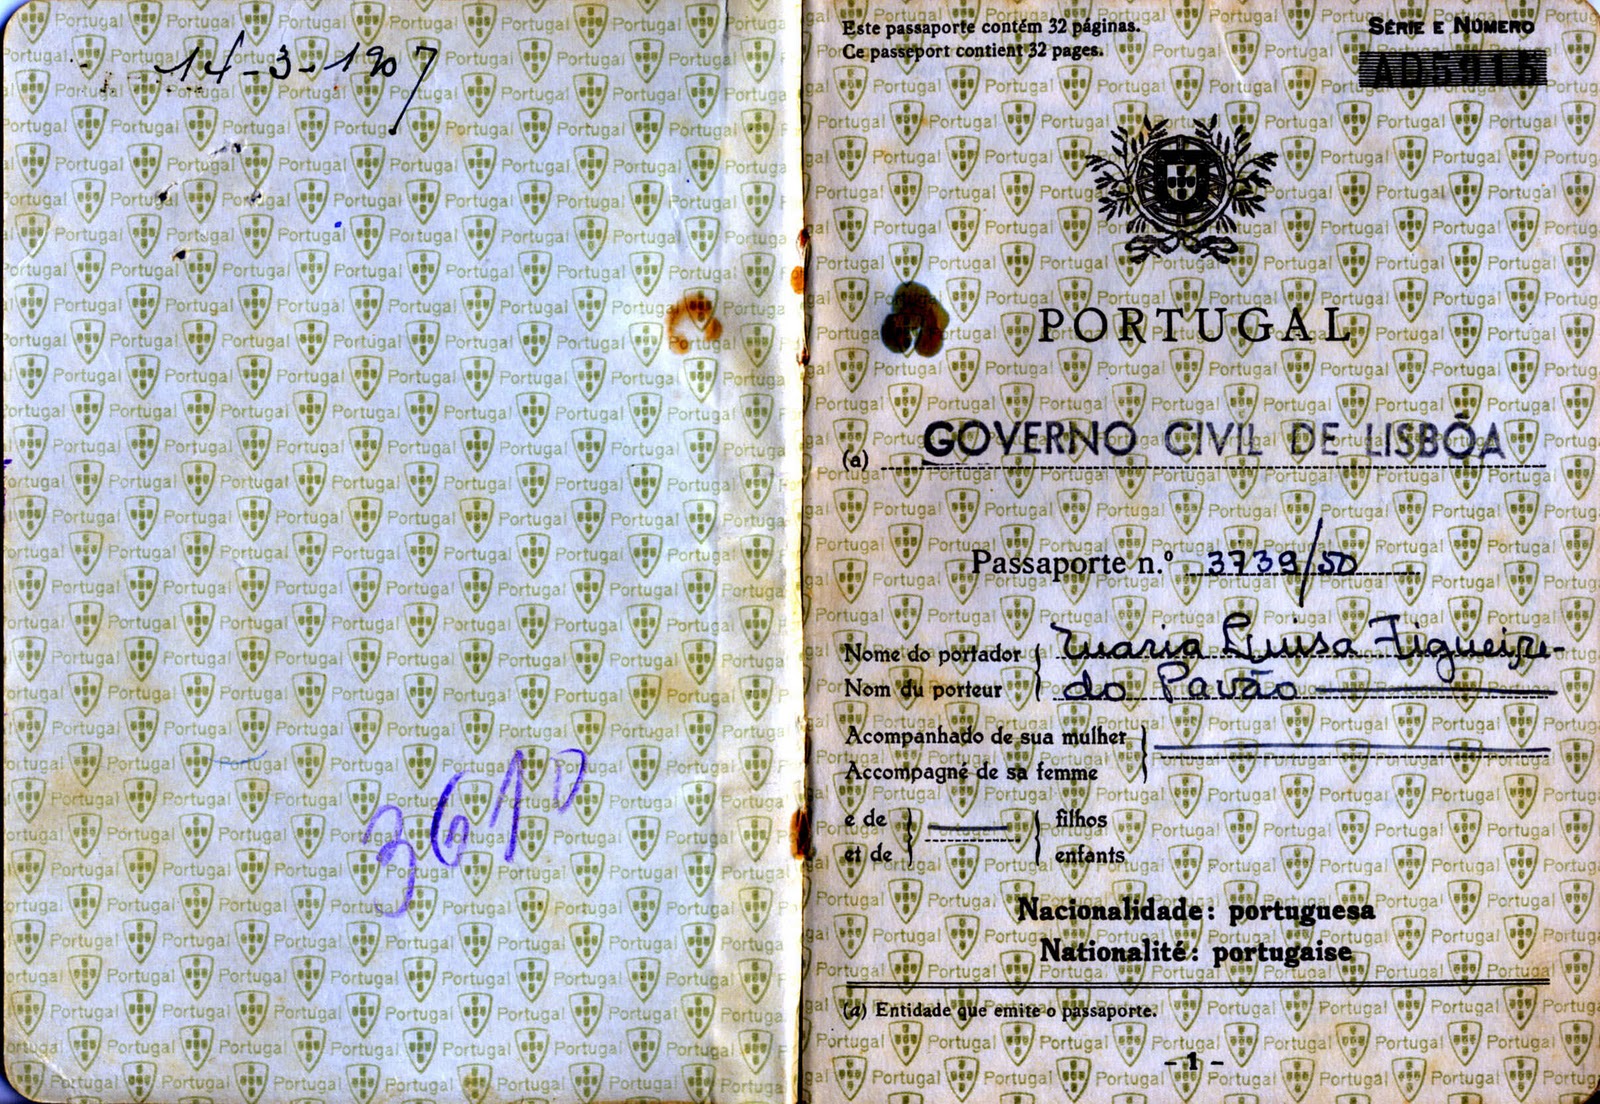 14-3-1907
3610
Este passaporte contém 32 páginas.
Ce passeport contient 32 pages.
SÉRIE E NÚMERO
AD5915
PORTUGAL
(a) GOVERNO CIVIL DE LISBÔA
Passaporte n.º 3739/50
Nome do portador
Nom du porteur
Maria Luisa Figueire-
do Pavão
Acompanhado de sua mulher
Accompagné de sa femme
e de
et de
filhos
enfants
Nacionalidade: portuguesa
Nationalité: portugaise
(a) Entidade que emite o passaporte.
- 1 -